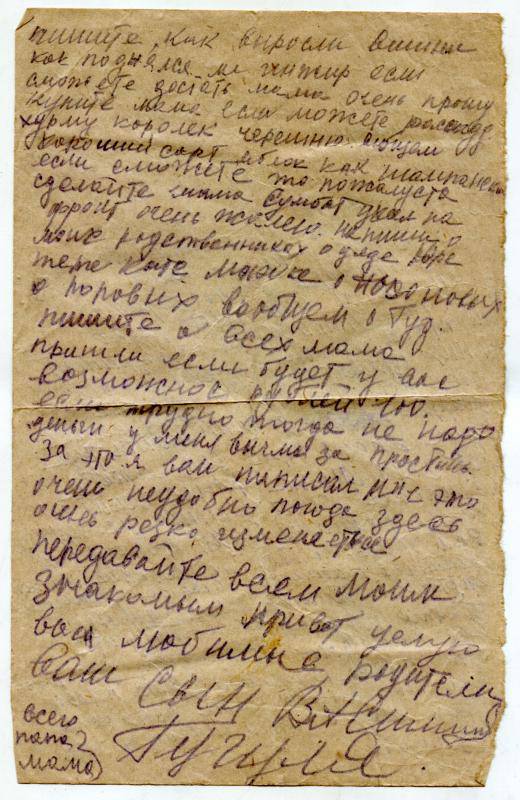 пишите, как выросли вишни
как поднялся ли инжир если
сможете достать мама очень прошу
купите мама если можете рассаду
хурму королек черешню вощем
хороший сорт яблок как шампанский
если сможете то пожалуста
сделайте мама уехал на
фронт очень жалею. напиши о
моих родственниках о дяде
тете кате о
о вообщем о Гуд.
пишите о всех мама
пришли если будет у вас
возможнос рублей 100.
если трудно тогда не надо
деньги у меня вычли за простынь
за это я вам написал мне это
очень неудобно погода здесь
очень резко изменяеться
передавайте всем моим
знакомым привет целую
вас любимые родители
Ваш Сын
всего
папа
мама